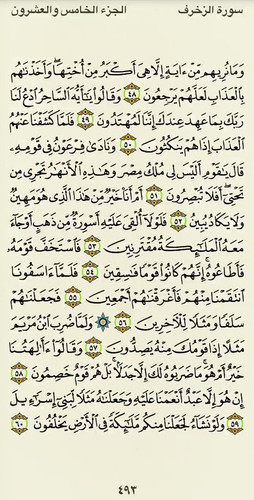 سورة الزخرف
الجزء الخامس والعشرون
وَمَا نُرِيهِم مِّنْ ءَايَةٍ إِلَّا هِىَ أَكْبَرُ مِنْ أُخْتِهَا وَأَخَذْنَٰهُم
بِٱلْعَذَابِ لَعَلَّهُمْ يَرْجِعُونَ ٤٨ وَقَالُوا۟ يَٰٓأَيُّهَ ٱلسَّاحِرُ ٱدْعُ لَنَا
رَبَّكَ بِمَا عَهِدَ عِندَكَ إِنَّنَا لَمُهْتَدُونَ ٤٩ فَلَمَّا كَشَفْنَا عَنْهُمُ
ٱلْعَذَابَ إِذَا هُمْ يَنكُثُونَ ٥٠ وَنَادَىٰ فِرْعَوْنُ فِى قَوْمِهِۦ
قَالَ يَٰقَوْمِ أَلَيْسَ لِى مُلْكُ مِصْرَ وَهَٰذِهِ ٱلْأَنْهَٰرُ تَجْرِى مِن
تَحْتِىٓ أَفَلَا تُبْصِرُونَ ٥١ أَمْ أَنَا۠ خَيْرٌ مِّنْ هَٰذَا ٱلَّذِى هُوَ مَهِينٌ
وَلَا يَكَادُ يُبِينُ ٥٢ فَلَوْلَآ أُلْقِىَ عَلَيْهِ أَسْوِرَةٌ مِّن ذَهَبٍ أَوْ جَآءَ
مَعَهُ ٱلْمَلَٰٓئِكَةُ مُقْتَرِنِينَ ٥٣ فَٱسْتَخَفَّ قَوْمَهُۥ
فَأَطَاعُوهُ إِنَّهُمْ كَانُوا۟ قَوْمًا فَٰسِقِينَ ٥٤ فَلَمَّآ ءَاسَفُونَا
ٱنتَقَمْنَا مِنْهُمْ فَأَغْرَقْنَٰهُمْ أَجْمَعِينَ ٥٥ فَجَعَلْنَٰهُمْ
سَلَفًا وَمَثَلًا لِّلْءَاخِرِينَ ٥٦ وَلَمَّا ضُرِبَ ٱبْنُ مَرْيَمَ
مَثَلًا إِذَا قَوْمُكَ مِنْهُ يَصِدُّونَ ٥٧ وَقَالُوٓا۟ ءَأَٰلِهَتُنَا
خَيْرٌ أَمْ هُوَ مَا ضَرَبُوهُ لَكَ إِلَّا جَدَلًۢا بَلْ هُمْ قَوْمٌ خَصِمُونَ ٥٨
إِنْ هُوَ إِلَّا عَبْدٌ أَنْعَمْنَا عَلَيْهِ وَجَعَلْنَٰهُ مَثَلًا لِّبَنِىٓ إِسْرَٰٓءِيلَ
٥٩ وَلَوْ نَشَآءُ لَجَعَلْنَا مِنكُم مَّلَٰٓئِكَةً فِى ٱلْأَرْضِ يَخْلُفُونَ ٦٠
٤٩٣